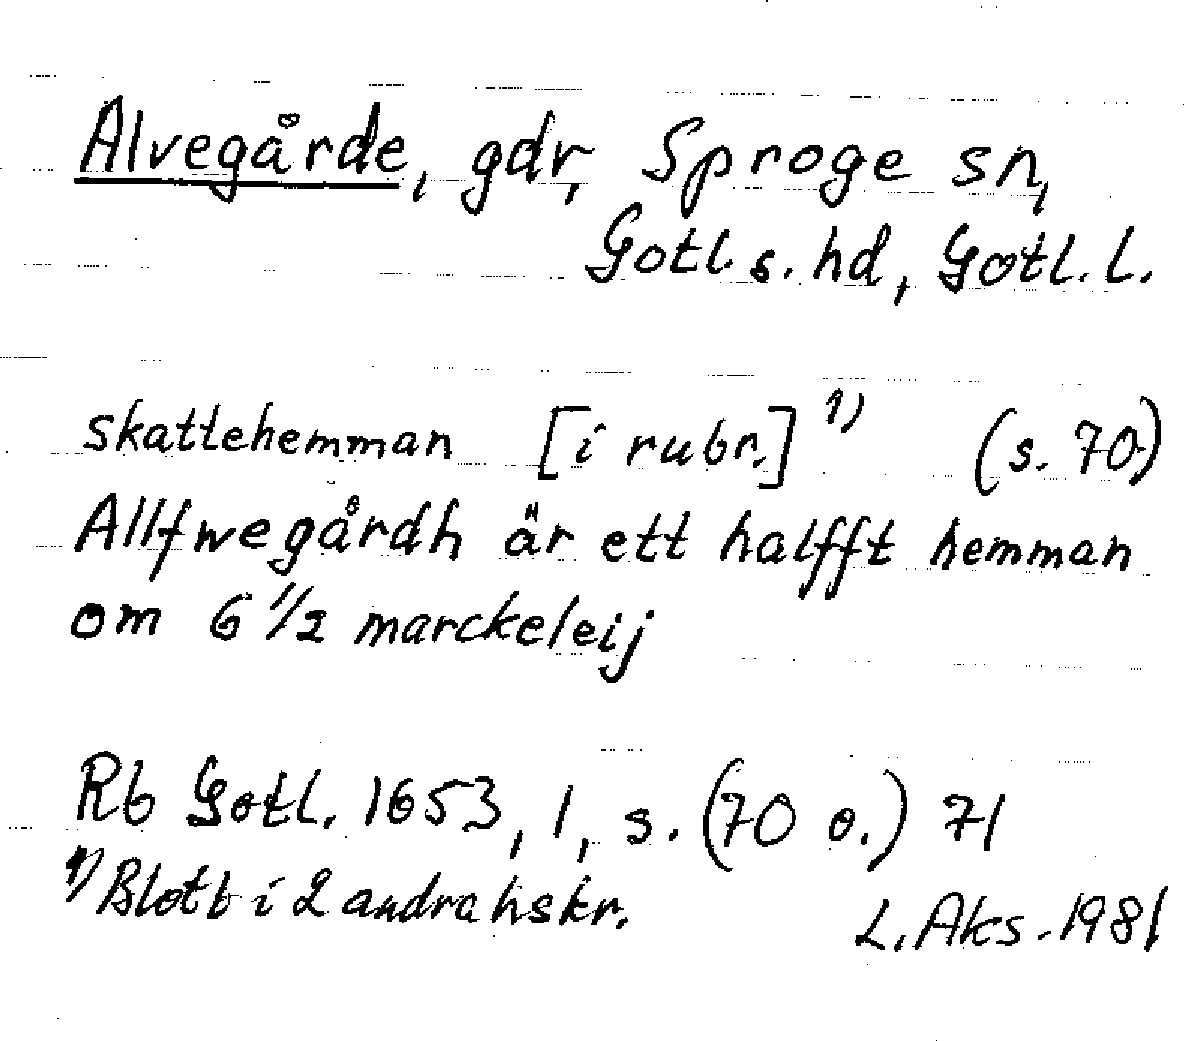 Alvegårde, gdr, Sproge sn,
Gotl. s. hd, Gotl. l.
skattehemman [i rubr.] 1) (s. 70)
Allfwegårdh är ett halfft hemman
om 6 1/2 marckeleij
Rb Gotl. 1653, 1, s. (70 o.) 71
1) Blott i 2 andra hskr.
L. Aks. 1981